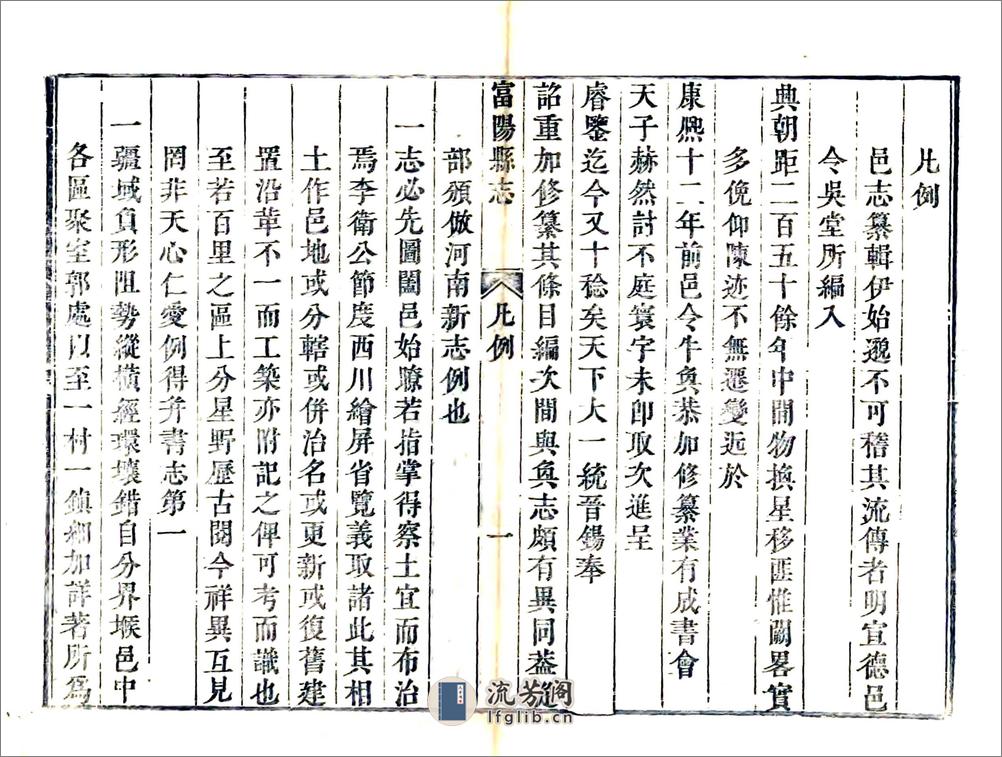 凡例
邑志纂輯伊始邈不可稽其流傳者明宣德邑
令吳堂所編入
典朝距二百五十餘年中間物換星移匪惟闕畧實
多俛仰陳迹不無遷變近於
康熙十二年前邑令牛奐恭加修纂業有成書會
天子赫然討不庭寰宇未卽取次進呈
睿鑒迄今又十稔矣天下大一統晉錫奉
詔重加修纂其條目編次間與奐志頗有異同葢遵
富陽縣志
凡例
一
部頒倣河南新志例也
一志必先圖闔邑始瞭若指掌得察土宜而布治
焉李衛公節度西川繪屏省覽義取諸此其相
土作邑地或分轄或併治名或更新或復舊建
置沿革不一而工築亦附記之俾可考而識也
至若百里之區上分星野歷古閱今祥異互見
罔非天心仁愛例得并書志第一
一疆域負形阻勢縱橫經環壤錯自分界堠邑中
各區聚室郭處以至一村一鎮細加詳著所爲
流芳閣
lfglib.cn